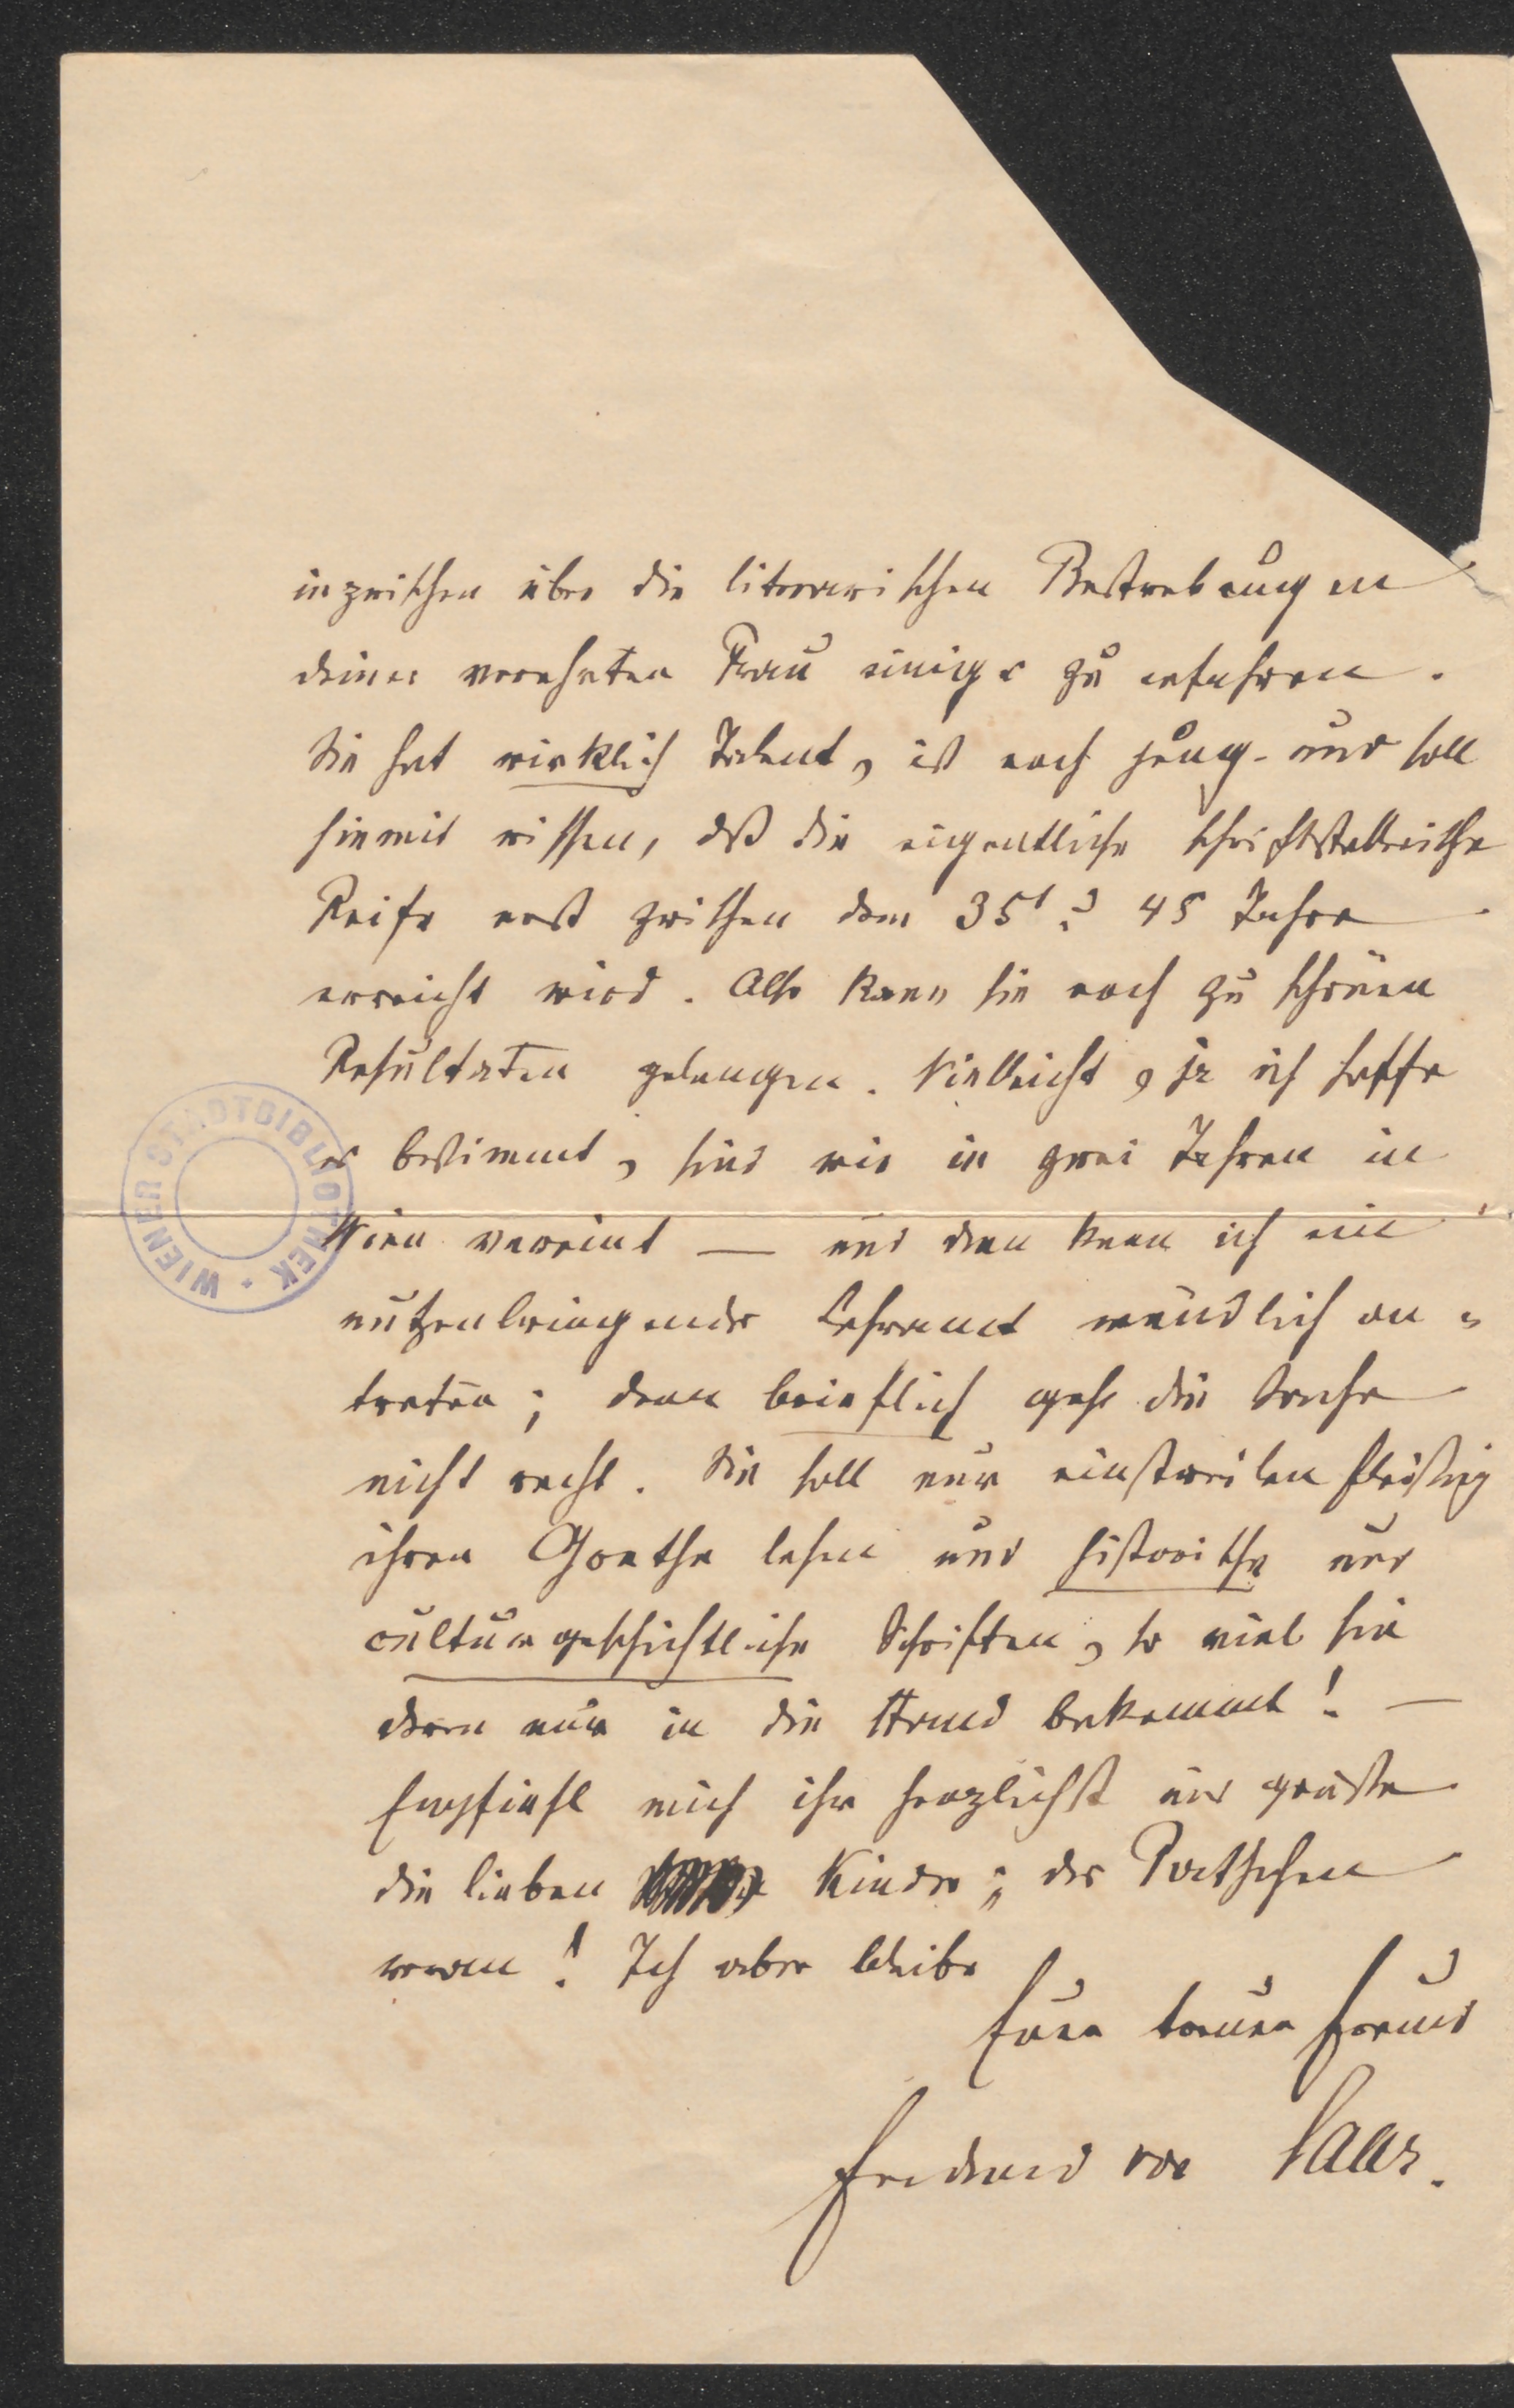 inzwischen über die literarischen Bestrebungen
deiner verehrten Frau einiges zu erfahren.
Sie hat wirklich Talent, ist noch jung - und soll
hiemit wissen, daß die eigentliche schriftstellerische
Reife erst zwischen dem 35t. u 45 Jahre
erreicht wird. Also kann sie noch zu schönen
Resultaten gelangen. Vielleicht, ja ich hoffe
es bestimmt, sind wir in zwei Jahren in
Wien vereint — und dann kann ich ein
nutzenbringendes Lehramt mündlich an=
treten; denn brieflich geht die Sache
nicht recht. Sie soll nur einstweilen fleißig
ihren Goethe lesen und historische und
culturgeschichtliche Schriften, so viel sie
deren nur in die Hand bekommt! —
Empfiehl mich ihr herzlichst und grüße
die lieben Kinder; des
! Ich aber bleibe
Euer treuer Freund
Ferdinand von Saar.
WIENER STADTBIBLIOTHEK